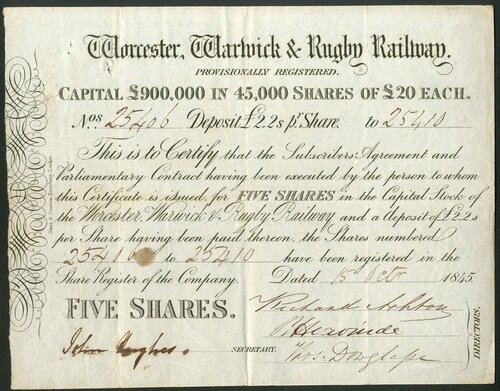 Worcester, Warwick & Rugby Railway.
PROVISIONALLY REGISTERED.
CAPITAL £900,000 IN 45,000 SHARES OF £20 EACH.
Nos 25406 Deposit £2.2s pr Share. to 25410
This is to Certify that the Subscribers' Agreement and
Parliamentary Contract having been executed by the person to whom
this Certificate is issued, for FIVE SHARES in the Capital Stock of
the Worcester, Warwick & Rugby Railway and a deposit of £2.2s
per Share having been paid thereon, the Shares numbered
25406 to 25410 have been registered in the
Share Register of the Company. Dated 15 Octr 1845.
FIVE SHARES. Richard Ashton
John Hughes. SECRETARY.
Thos.
DIRECTORS.